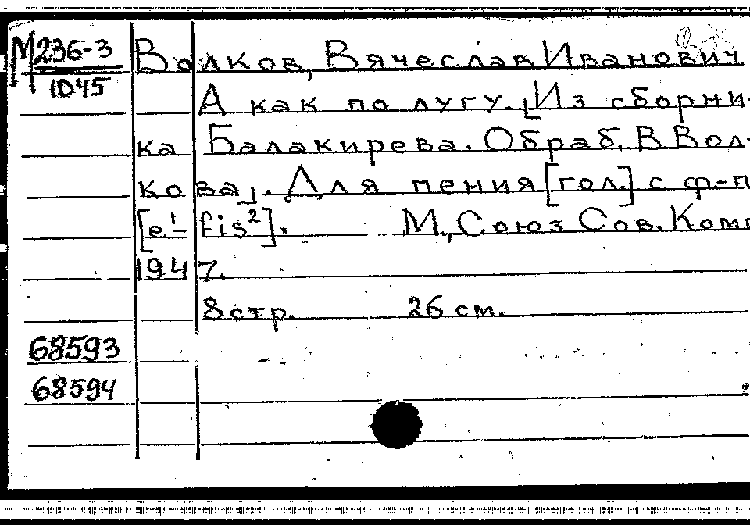 М 236-3 Волков, Вячеслав Иванович
1045 А как по лугу. [Из сборни-
ка Балакирева. Обраб. В Вол-
кова]. Для пения [гол.] с ф-п
[e¹-fis²]. М., Союз Сов. Комп
1947.
8 стр. 26 см.
68593
68594